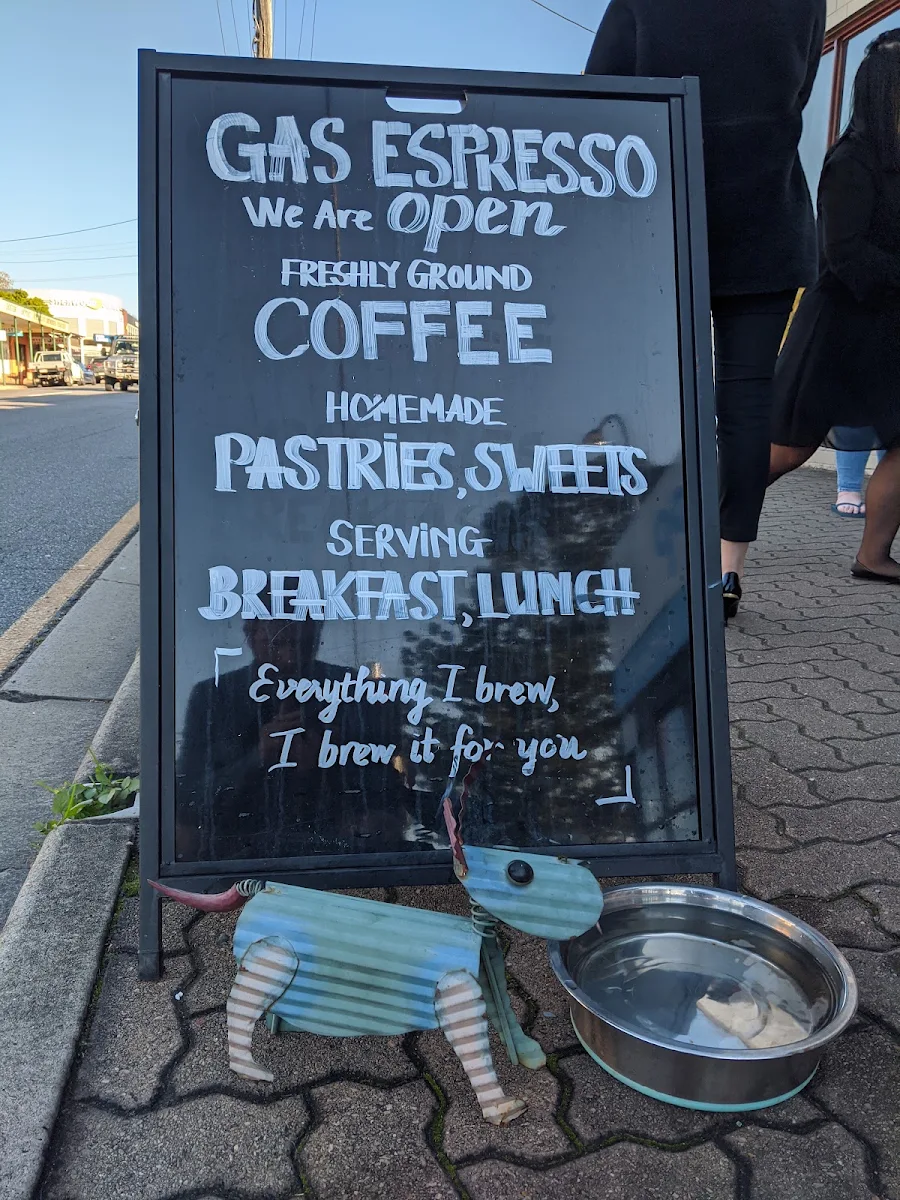 GAS ESPRESSO
We Are open
FRESHLY GROUND
COFFEE
HOMEMADE
PASTRiES, SWEETS
SERViNG
BREAKFAST, LUNCH
Everything I brew,
I brew it for you